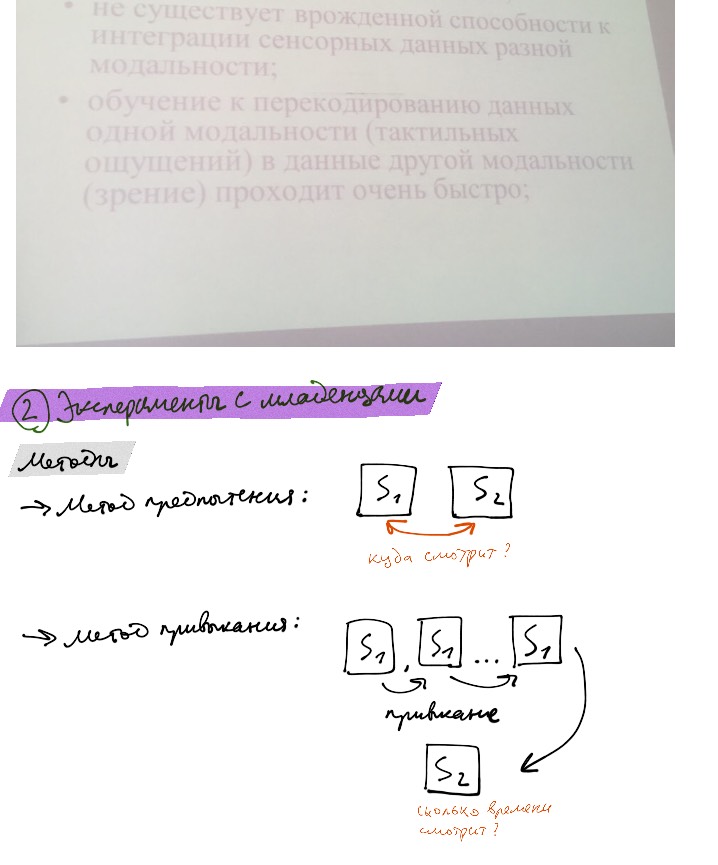 • не существует врожденной способности к
интеграции сенсорных данных разной
модальности;
• обучение к перекодированию данных
одной модальности (тактильных
ощущений) в данные другой модальности
(зрение) проходит очень быстро;
2 Эксперименты с младенцами
Методы
→ Метод предпочтения:
S1 S2
куда смотрит?
→ Метод привыкания:
S1, S1 ... S1
привыкание
S2
сколько времени
смотрит?